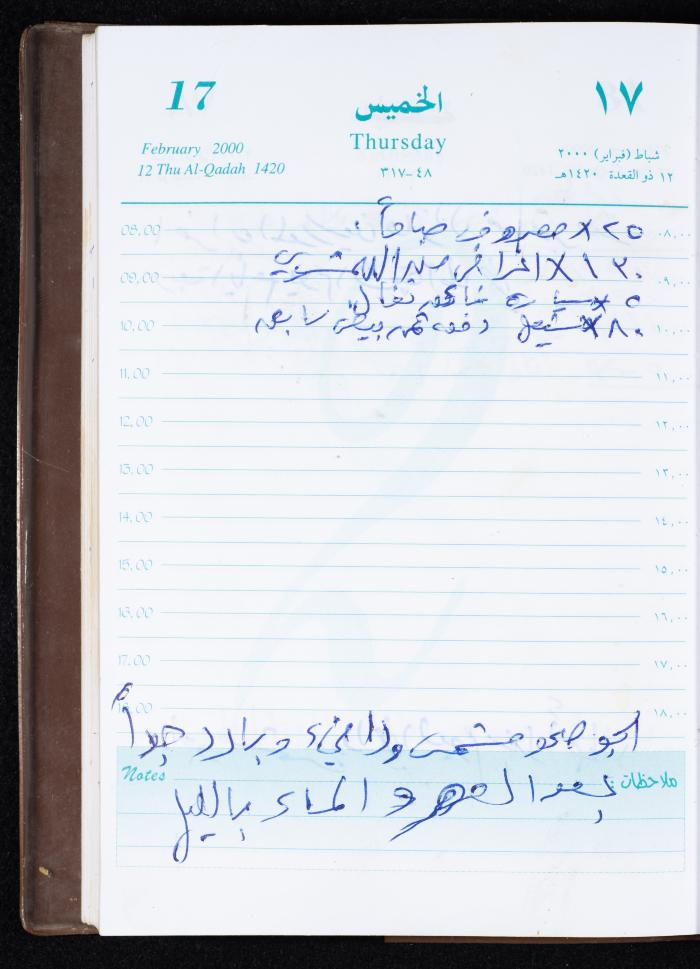 17 الخميس ١٧
February 2000 Thursday شباط (فبراير) ٢٠٠٠
12 Thu Al-Qadah 1420 ٣١٧-٤٨ ١٢ ذو القعدة ١٤٢٠هـ
08.00 ٢٥ × مصروف صباحاً ٠٨,٠٠
09.00 ١٣٠ × ٠٩,٠٠
٥ × سيارة
10.00 ٨٠ × ١٠,٠٠
11.00 ١١,٠٠
12.00 ١٢,٠٠
13.00 ١٣,٠٠
14.00 ١٤,٠٠
15.00 ١٥,٠٠
16.00 ١٦,٠٠
17.00 ١٧,٠٠
18.00 ١٨,٠٠
الجو صحو مشمس ودافيء وبارد جداً
Notes ملاحظات
بعد العصر و المساء بالليل